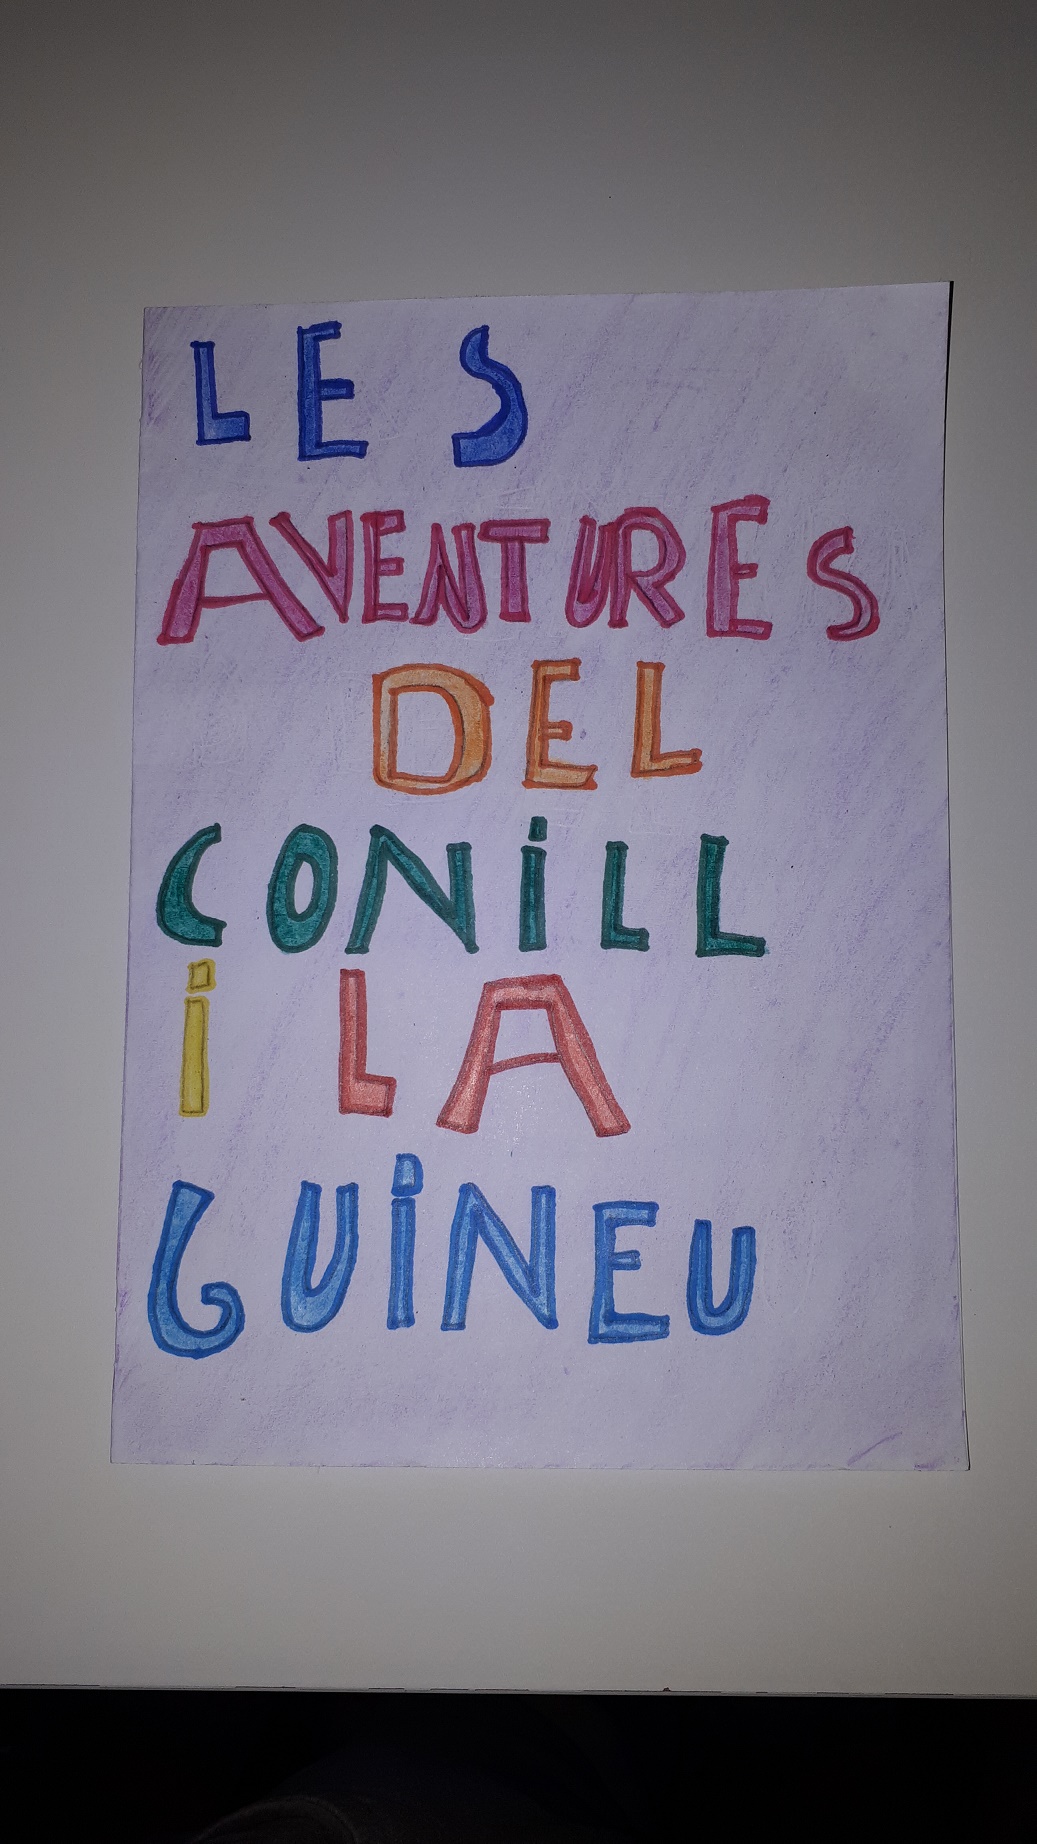 LES
AVENTURES
DEL
CONiLL
i LA
GUiNEU